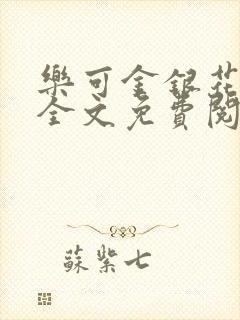 樂可金銀花
全文免費閱
蘇紫七